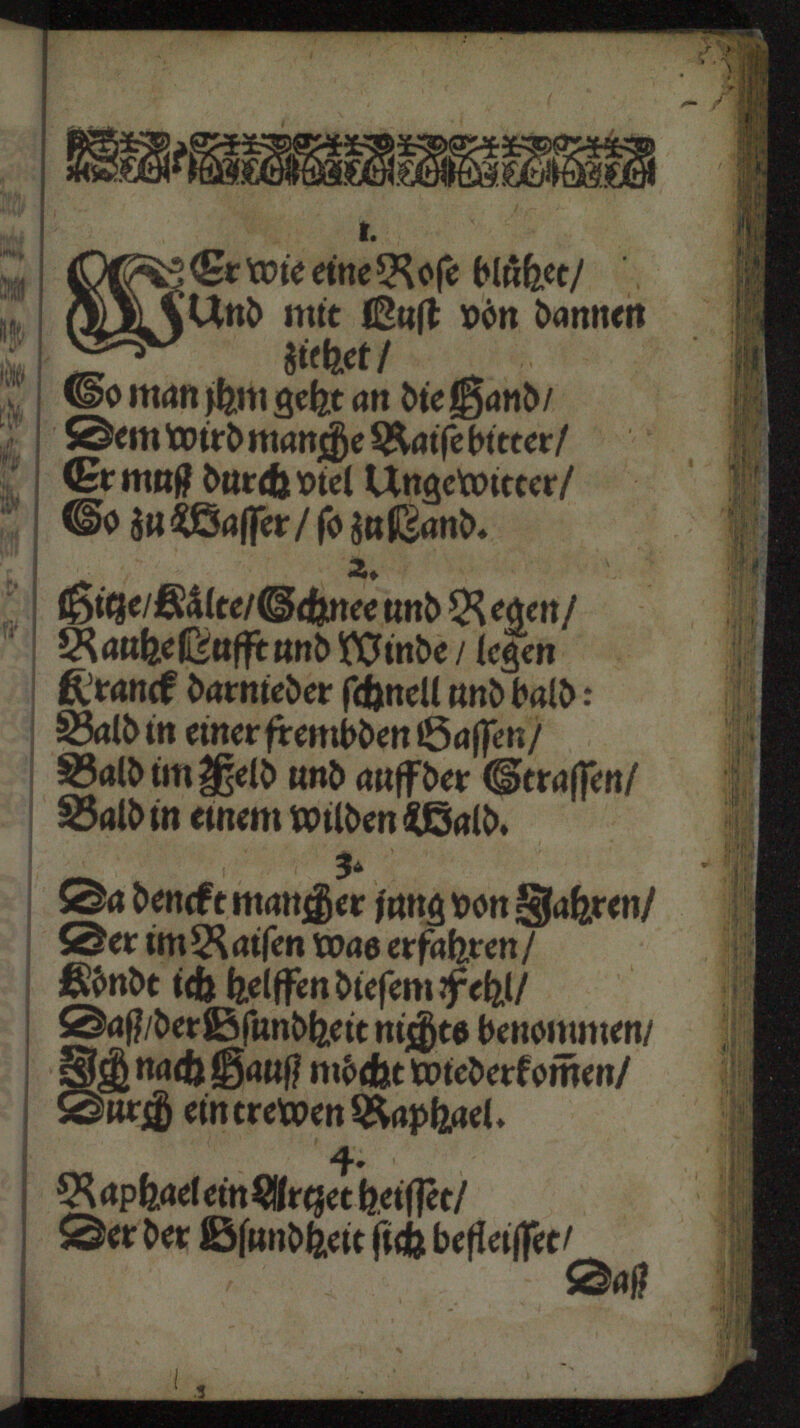 1.
WEr wie eine Roſe bluͤhet/
Und mit Luſt von dannen
ziehet /
So man jhm geht an die Hand/
Dem wird manche Raiſe bitter/
Er muß durch viel Ungewitter/
So zu Waſſer / ſo zu Land.
2.
Hitze/Kaͤlte/Schnee und Regen/
Rauhe Lufft und Winde / legen
Kranck darnieder ſchnell und bald:
Bald in einer frembden Gaſſen/
Bald im Feld und auff der Straſſen/
Bald in einem wilden Wald.
3.
Da denckt mancher jung von Jahren/
Der im Raiſen was erfahren/
Koͤndt ich helffen dieſem Fehl/
Daß/der Gſundheit nichts benommen/
Ich nach Hauß moͤcht wiederkom̃en/
Durch ein trewen Raphael.
4.
Raphael ein Artzet heiſſet/
Der der Gſundheit ſich befleiſſet/
Daß